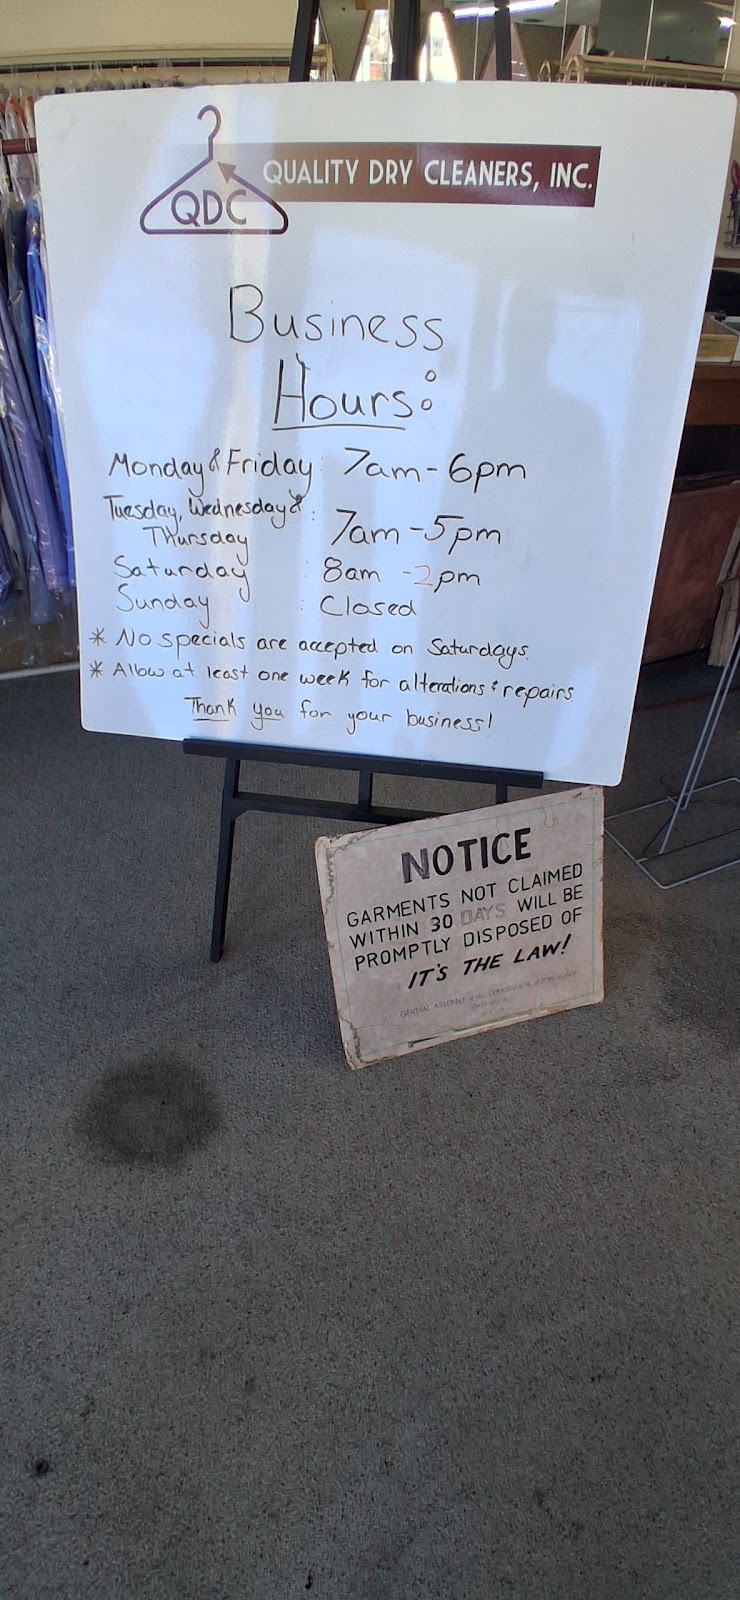 QDC
QUALITY DRY CLEANERS, INC.
Business
Hours:
Monday & Friday: 7am-6pm
Tuesday, Wednesday & :
Thursday 7am-5pm
Saturday : 8am -2pm
Sunday : Closed
* No specials are accepted on Saturdays.
* Allow at least one week for alterations & repairs.
Thank you for your business!
NOTICE
GARMENTS NOT CLAIMED
WITHIN 30 DAYS WILL BE
PROMPTLY DISPOSED OF
IT'S THE LAW!
GENERAL ASSEMBLY of the COMMONWEALTH of PENNSYLVANIA